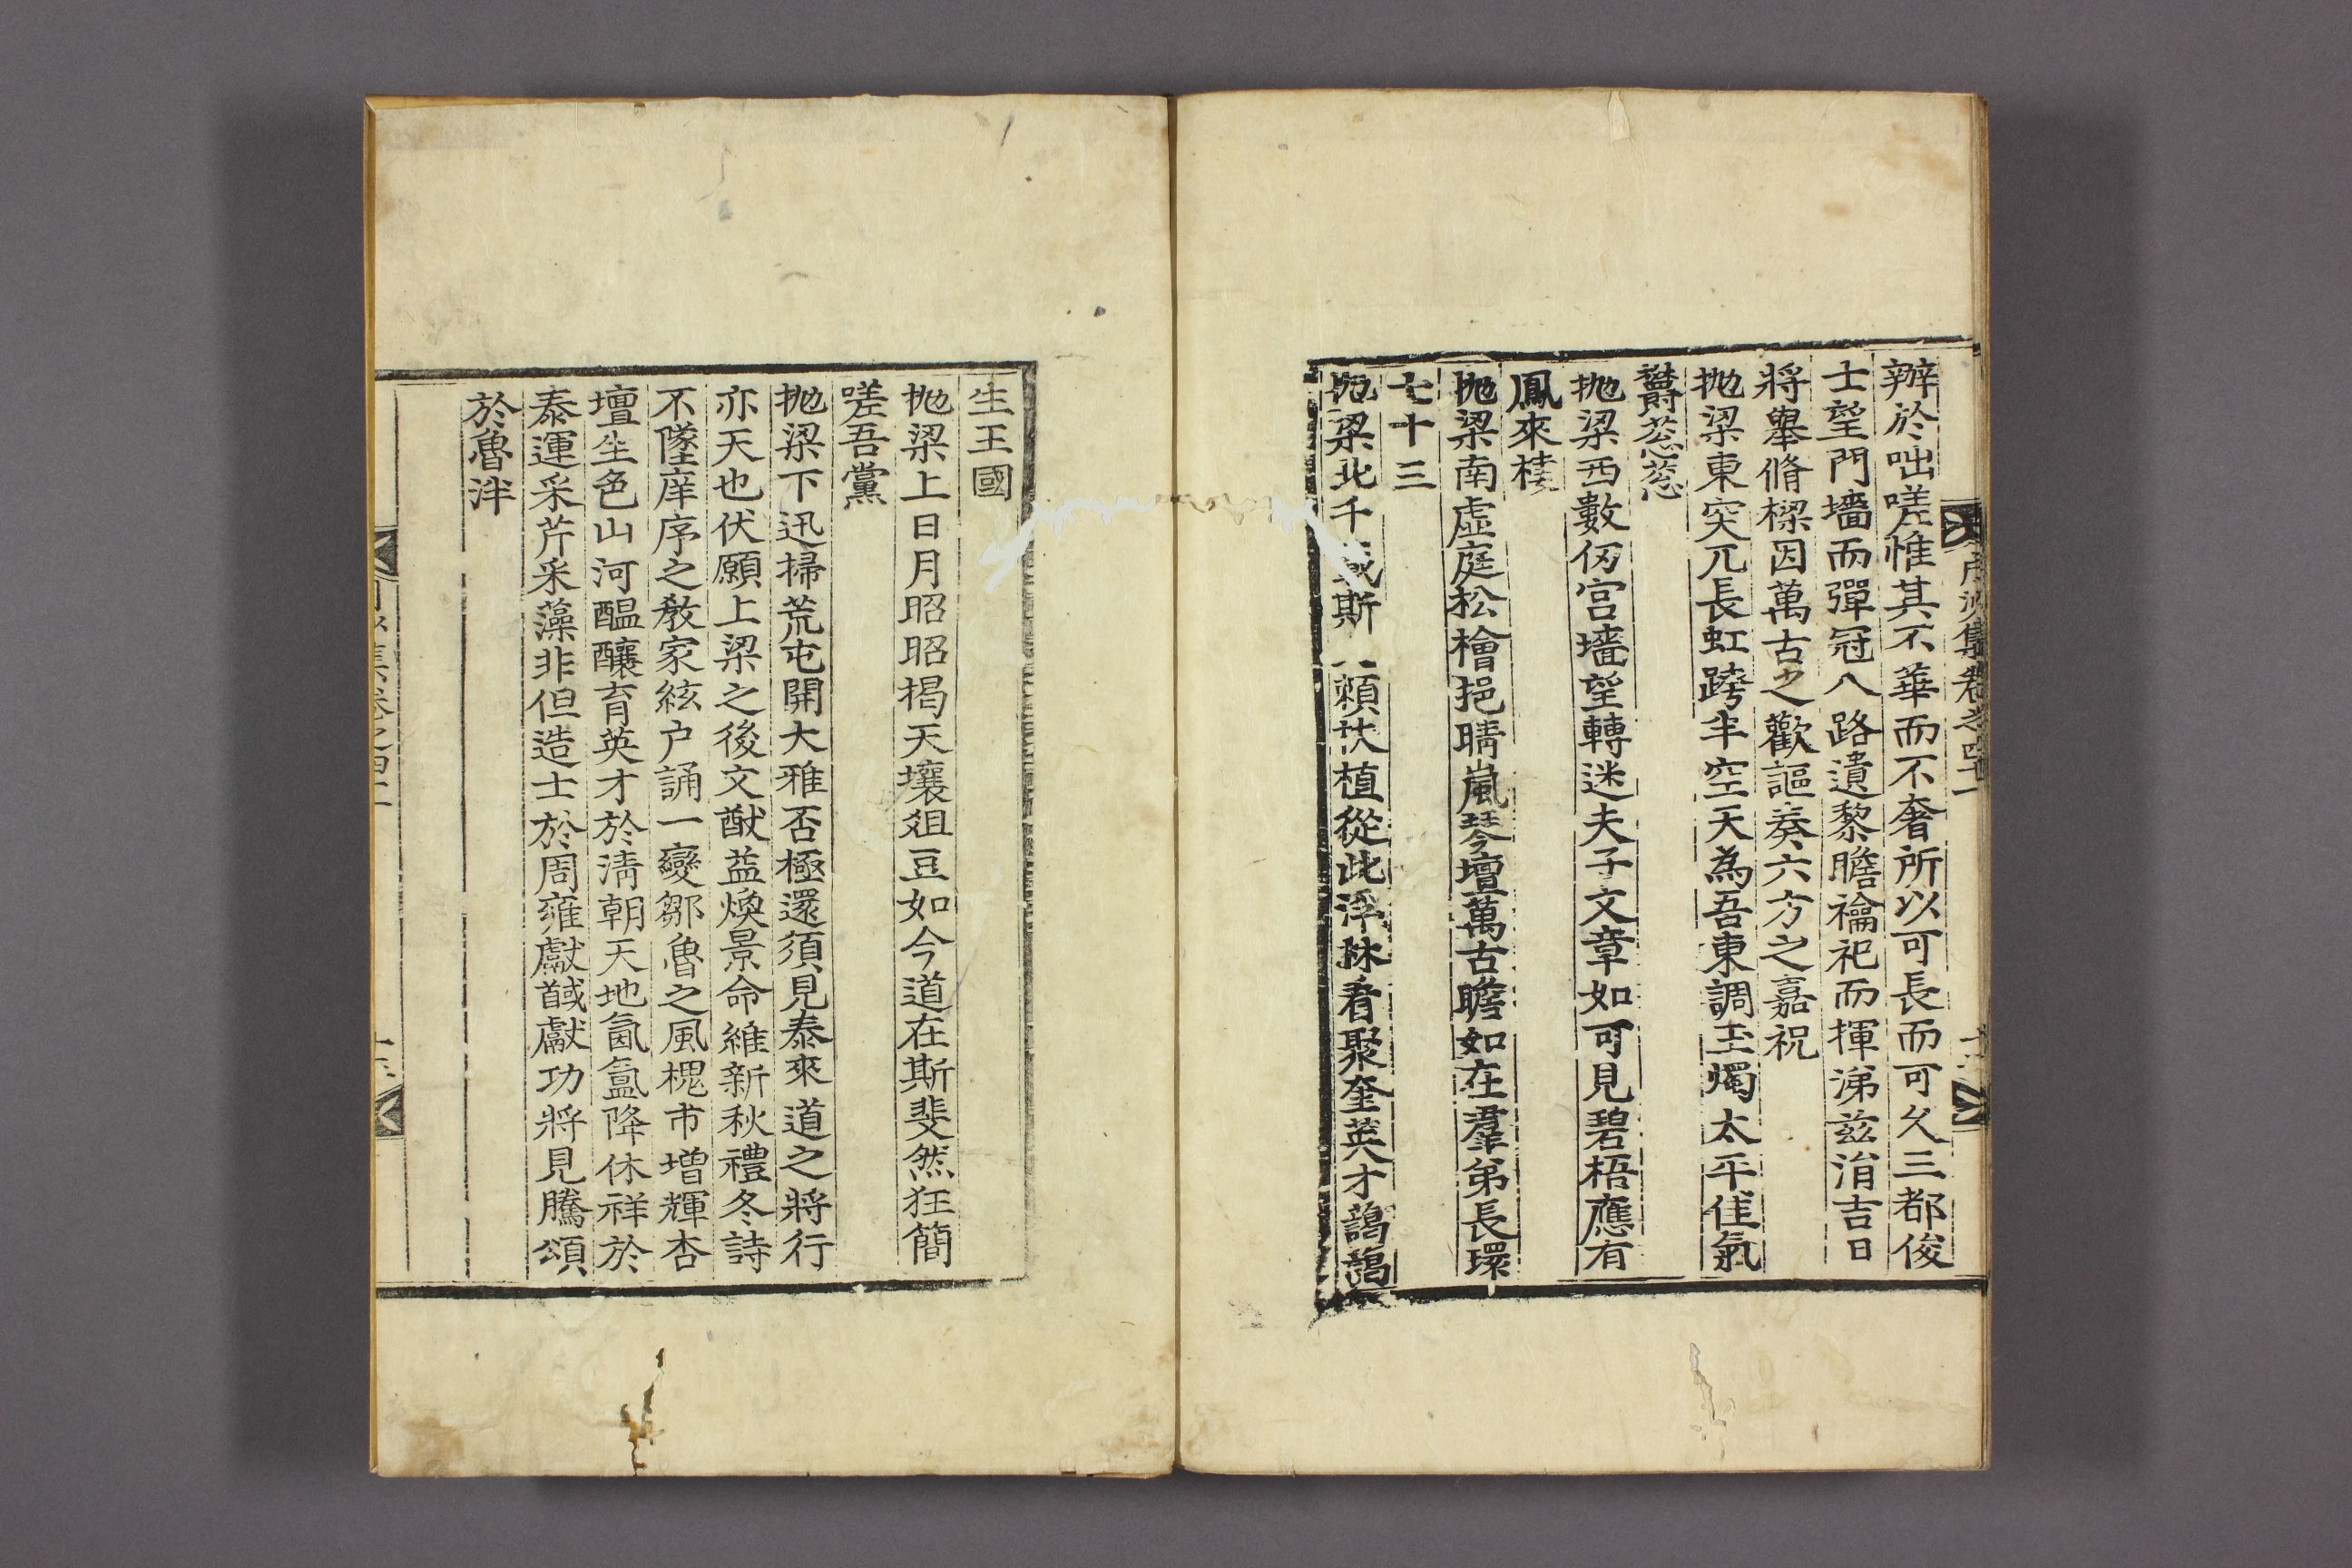 月沙集卷之四十二
辦於咄嗟惟其不華而不奢所以可長而可久三都俊
士望門墻而彈冠八路遺黎瞻禴祀而揮涕玆涓吉日
將舉脩樑因萬古之歡謳奏六方之嘉祝
抛梁東突兀長虹跨半空天為吾東調玉燭太平佳氣
欝葱葱
抛梁西數仞宫墻望轉迷夫子文章如可見碧梧應有
鳳來棲
抛梁南虛庭松檜挹晴嵐琴壇萬古瞻如在羣弟長環
七十三
抛梁北千載斯 賴扶植從此浮秇看聚奎英才藹藹
生王國
抛梁上日月昭昭揭天壤俎豆如今道在斯斐然狂簡
嗟吾黨
抛梁下迅掃荒屯開大雅否極還須見泰來道之將行
亦天也伏願上梁之後文猷益煥景命維新秋禮冬詩
不墜庠序之教家絃户誦一變鄒魯之風槐市增輝杏
壇生色山河醞釀育英才於淸朝天地氤氳降休祥於
泰運采芹采藻非但造士於周雍獻馘獻功將見騰頌
於魯泮
月沙集卷之四十二